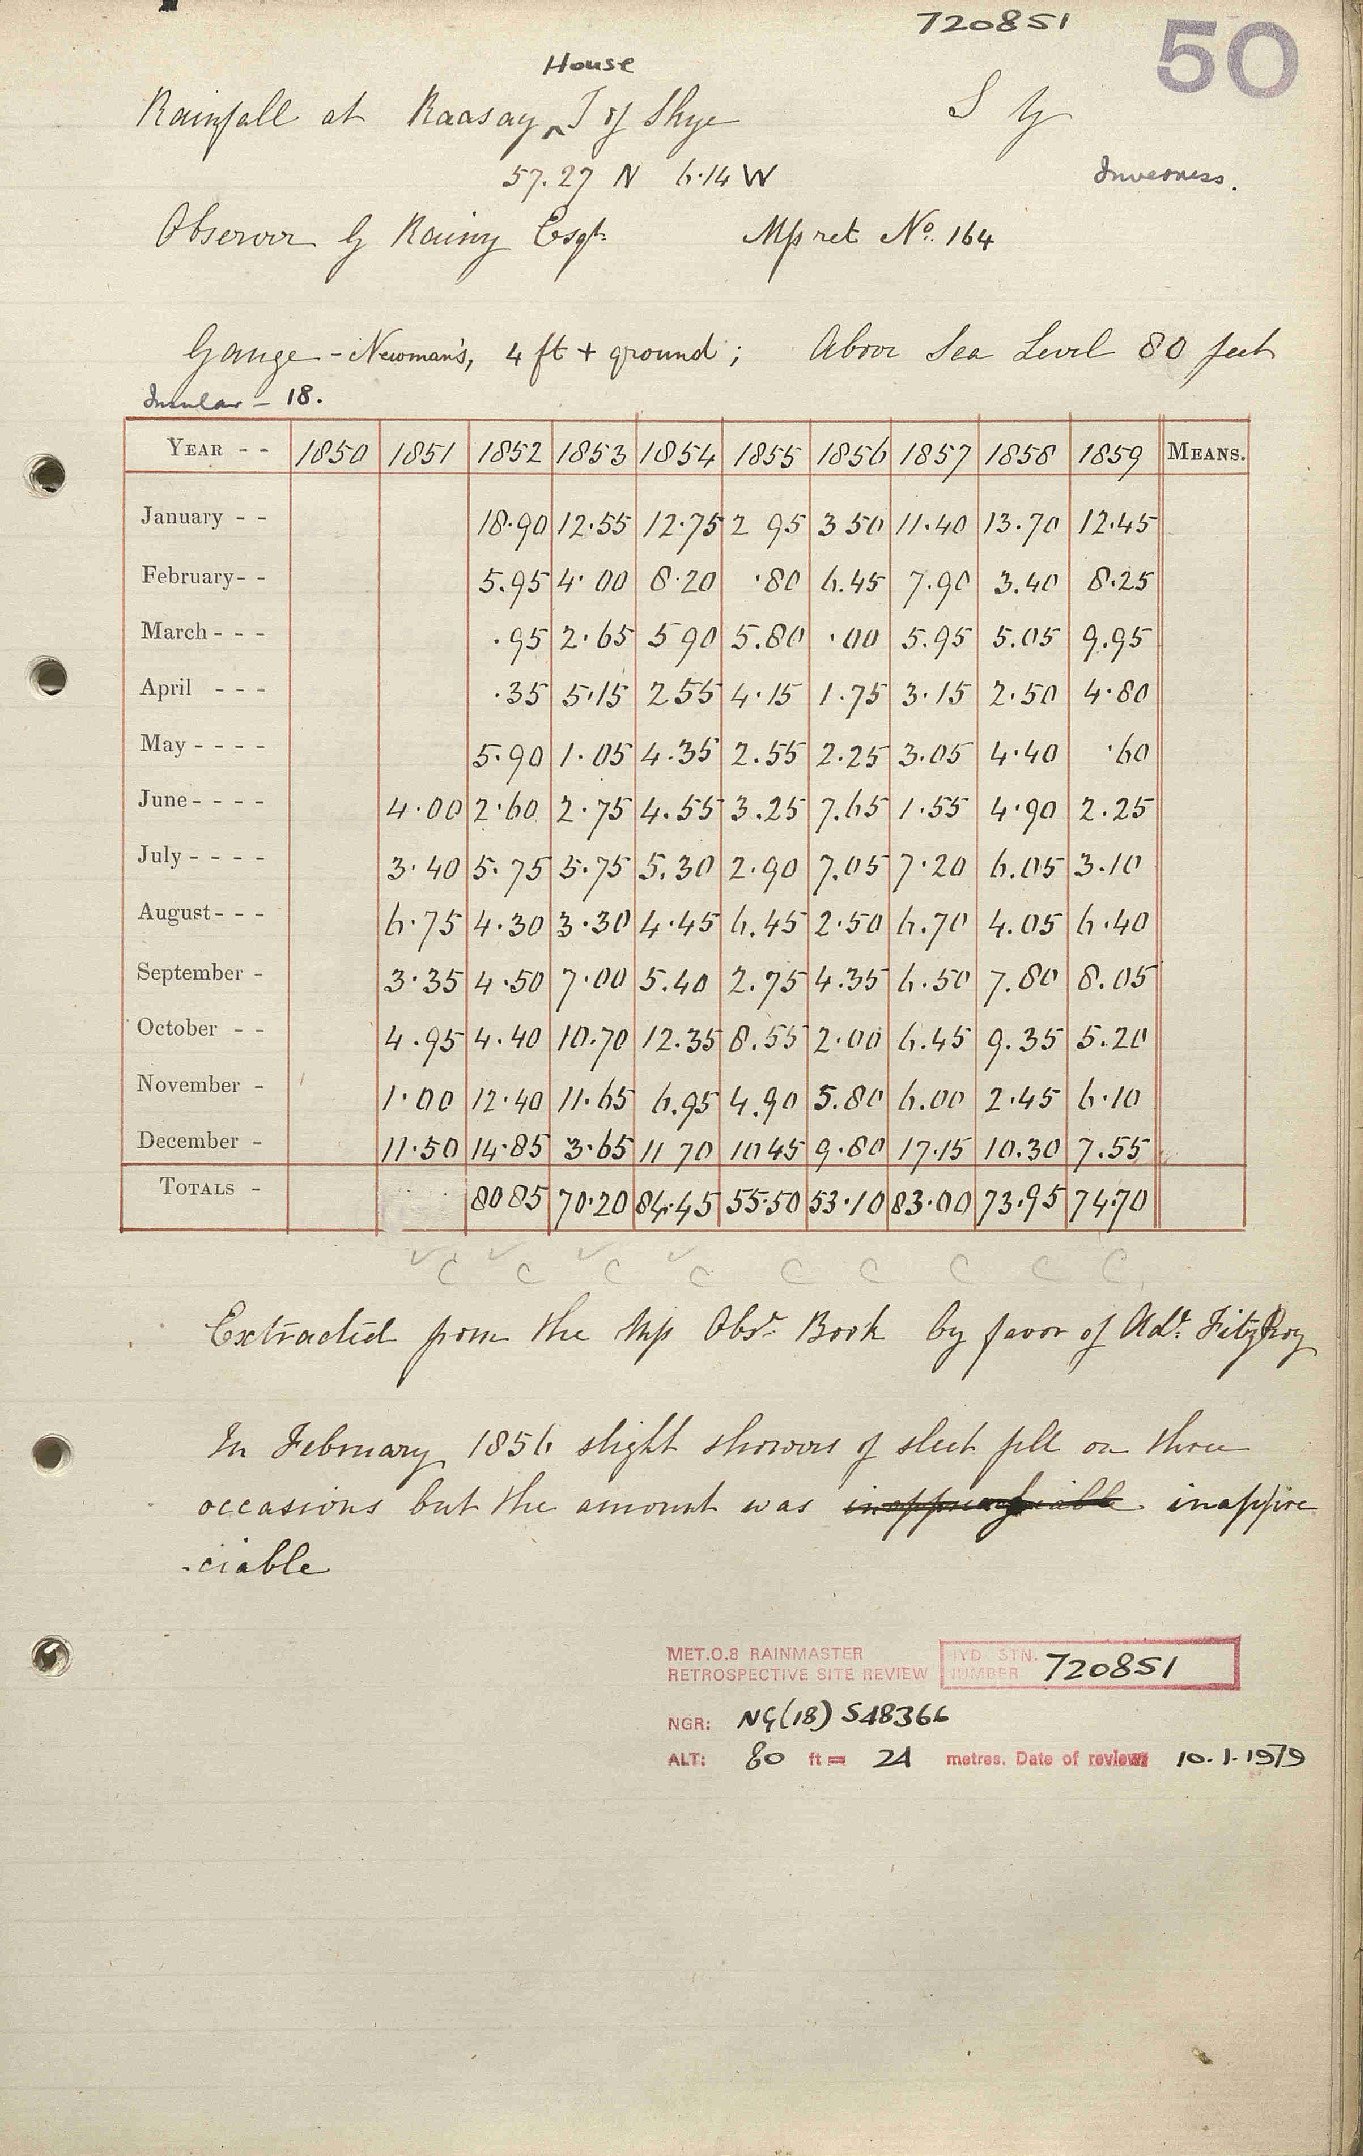 720851
50
House
Rainfall at Raasay ^ I of Skye
57.27 N 6.14 W
Inverness.
Observer G Rainy Esqr. Mp ret No. 164
Gauge - Newman's, 4 ft + ground; Above Sea Level 80 feet
Insular - 18.
YEAR - - 1850 1851 1852 1853 1854 1855 1856 1857 1858 1859 MEANS.
January - - 18.90 12.55 12.75 2 95 3 50 11.40 13.70 12.45
February - - 5.95 4.00 8.20 .80 6.45 7.90 3.40 8.25
March - - - .95 2.65 5 90 5.80 .00 5.95 5.05 9.95
April - - - .35 5.15 2 55 4.15 1.75 3.15 2.50 4.80
May - - - - 5.90 1.05 4.35 2.55 2.25 3.05 4.40 .60
June - - - - 4.00 2.60 2.75 4.55 3.25 7.65 1.55 4.90 2.25
July - - - - 3.40 5.75 5.75 5.30 2.90 7.05 7.20 6.05 3.10
August - - - 6.75 4.30 3.30 4.45 6.45 2.50 6.70 4.05 6.40
September - 3.35 4.50 7.00 5.40 2.75 4.35 6.50 7.80 8.05
October - - 4.95 4.40 10.70 12.35 8.55 2.00 6.45 9.35 5.20
November - 1.00 12.40 11.65 6.95 4.90 5.80 6.00 2.45 6.10
December - 11.50 14.85 3.65 11 70 10 45 9.80 17.15 10.30 7.55
TOTALS - 80 85 70.20 84.45 55.50 53.10 83.00 73.95 74.70
✓c ✓c ✓c ✓c c c c c c
Extracted from the Mp Obsr Book by favor of Adl. FitzRoy
In February 1856 slight showers of sleet fell on three
occasions but the amount was inappre
.ciable
MET.O.8 RAINMASTER
RETROSPECTIVE SITE REVIEW HYD STN. NUMBER 720851
NGR: NG(18) 548366
ALT: 80 ft = 24 metres. Date of review 10.1.1979